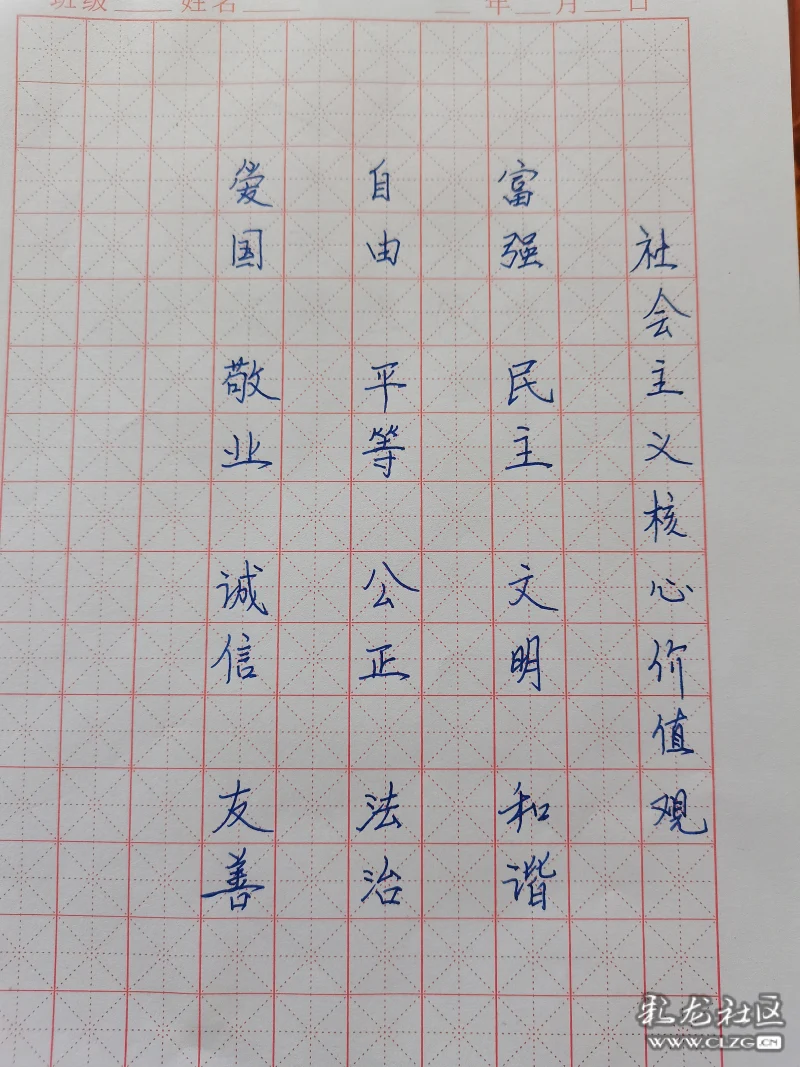 班级 姓名 年 月 日
社会主义核心价值观
富强 民主 文明 和谐
自由 平等 公正 法治
爱国 敬业 诚信 友善
礼龙社区
WWW.CLZG.CN